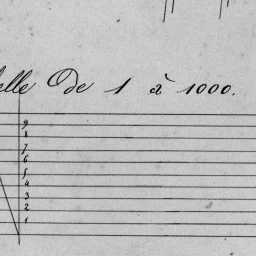 elle De 1 à 1000.
9
8
7
6
5
4
3
2
1